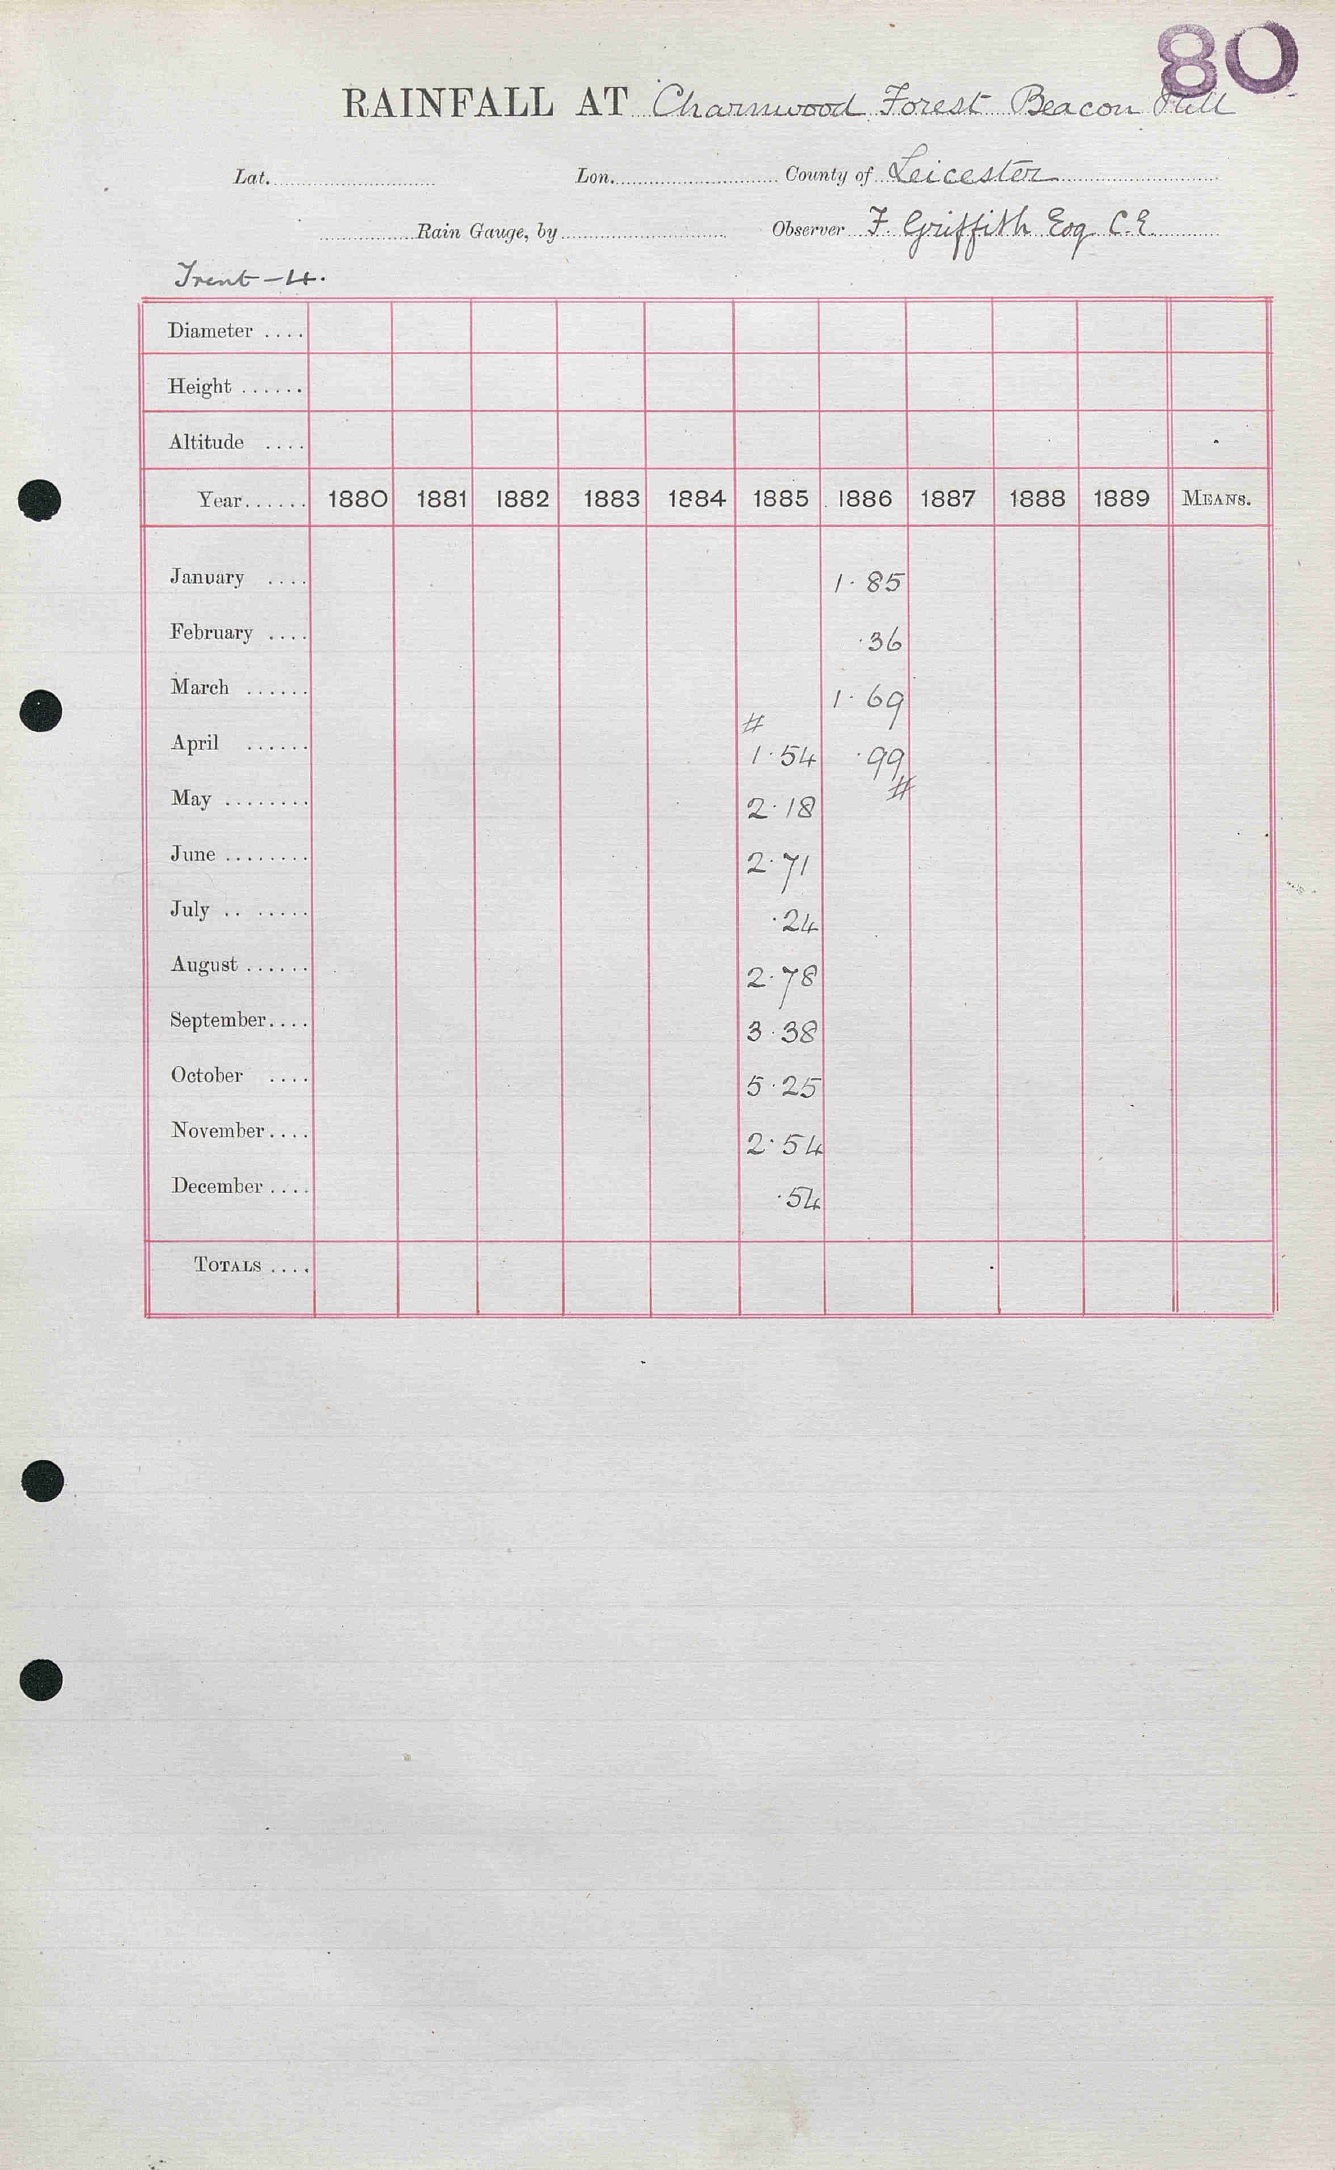 80
RAINFALL AT Charnwood Forest Beacon Hill
Lat. Lon. County of Leicester
Rain Gauge, by Observer F. Griffith Esq C.E.
Trent - 4.
Diameter ....
Height ......
Altitude ....
Year...... 1880 1881 1882 1883 1884 1885 1886 1887 1888 1889 MEANS.
January .... 1.85
February .... .36
March ...... 1.69
#
April ...... 1.54 .99
#
May ........ 2.18
June ........ 2.71
July .. ...... .24
August ...... 2.78
September.... 3.38
October .... 5.25
November.... 2.54
December .... .54
TOTALS ....